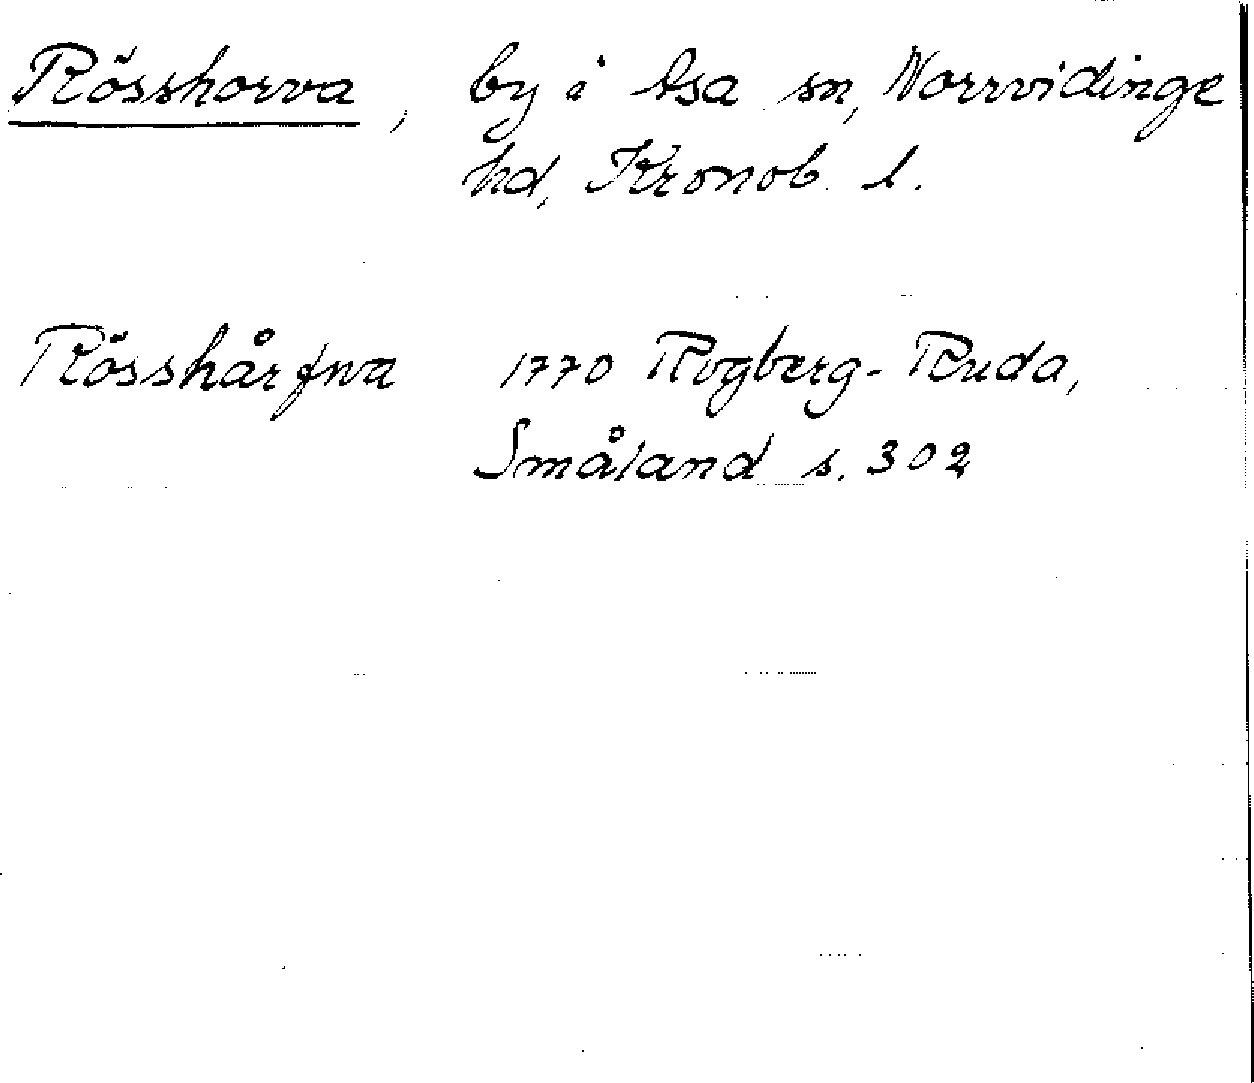 Rösshorva, by i Asa sn, Norrvidinge
hd, Kronob. l.
Rösshårfwa 1770 Rogberg-Ruda,
Småland s. 302